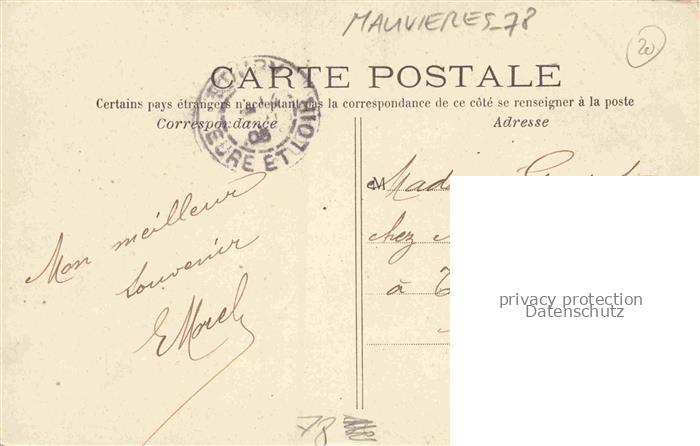 MAUVIERES_78
20
CARTE POSTALE
Certains pays étrangers n'acceptant pas la correspondance de ce côté se renseigner à la poste
Correspondance
Adresse
EURE ET LOIR
Mon meilleur
souvenir
EMorel
M
chez
à
privacy protection
Datenschutz
78